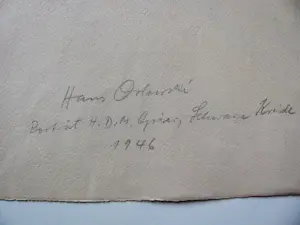 Hans Orlowski
Porträt H.D.M. Schwarze Kreide
1946